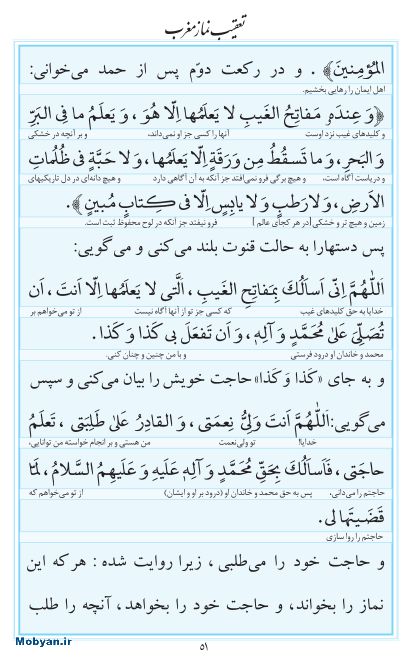 تعقیب نماز مغرب
المُؤمِنینَ﴾ . و در رکعت دوّم پس از حمد می‌خوانی:
اهل ایمان را رهایی بخشیم.
﴿وَ عِندَهُ مَفاتِحُ الغَیبِ لا یَعلَمُها اِلّا هُوَ ، وَ یَعلَمُ ما فِی البَرِّ
و کلیدهای غیب نزد اوست آنها را کسی جز او نمی‌داند، و بر آنچه در خشکی
وَ البَحرِ، وَ ما تَسقُطُ مِن وَرَقَةٍ اِلّا یَعلَمُها، وَ لا حَبَّةٍ فی ظُلُماتِ
و دریاست آگاه است، و هیچ برگی فرو نمی‌افتد جز آنکه به آن آگاهی دارد و هیچ دانه‌ای در دل تاریکیهای
الاَرضِ، وَ لا رَطبٍ وَ لا یابِسٍ اِلّا فی کِتابٍ مُبینٍ ﴾.
زمین و هیچ تر و خشکی [در هر کجای عالم ] فرو نیفتد جز آنکه در لوح محفوظ ثبت است.
پس دستها را به حالت قنوت بلند می‌کنی و می‌گویی:
اَللّٰهُمَّ اِنّی اَسأَلُکَ بِمَفاتِحِ الغَیبِ ، الَّتی لا یَعلَمُها اِلّا اَنتَ ، اَن
خدایا به حق کلیدهای غیب که کسی جز تو از آنها آگاه نیست از تو می‌خواهم بر
تُصَلِّیَ عَلیٰ مُحَمَّدٍ وَ آلِهِ ، وَ اَن تَفعَلَ بی کَذا وَ کَذا .
محمد و خاندان او درود فرستی و با من چنین و چنان کنی.
و به جای «کَذا وَ کَذا» حاجت خویش را بیان می‌کنی و سپس
می‌گویی: اَللّٰهُمَّ اَنتَ وَلِیُّ نِعمَتی ، وَ القادِرُ عَلیٰ طَلِبَتی ، تَعلَمُ
خدایا! تو ولی‌نعمت من هستی و بر انجام خواسته من توانایی،
حاجَتی ، فَاَسأَلُکَ بِحَقِّ مُحَمَّدٍ وَ آلِهِ عَلَیهِ وَ عَلَیهِمُ السَّلامُ ، لَمّا
حاجتم را می‌دانی، پس به حق محمد و خاندان او (درود بر او و ایشان) از تو می‌خواهم که
قَضَیتَها لی.
حاجتم را روا سازی
و حاجت خود را می‌طلبی ، زیرا روایت شده : هر که این
نماز را بخواند، و حاجت خود را بخواهد، آنچه را طلب
Mobyan.ir
۵۱